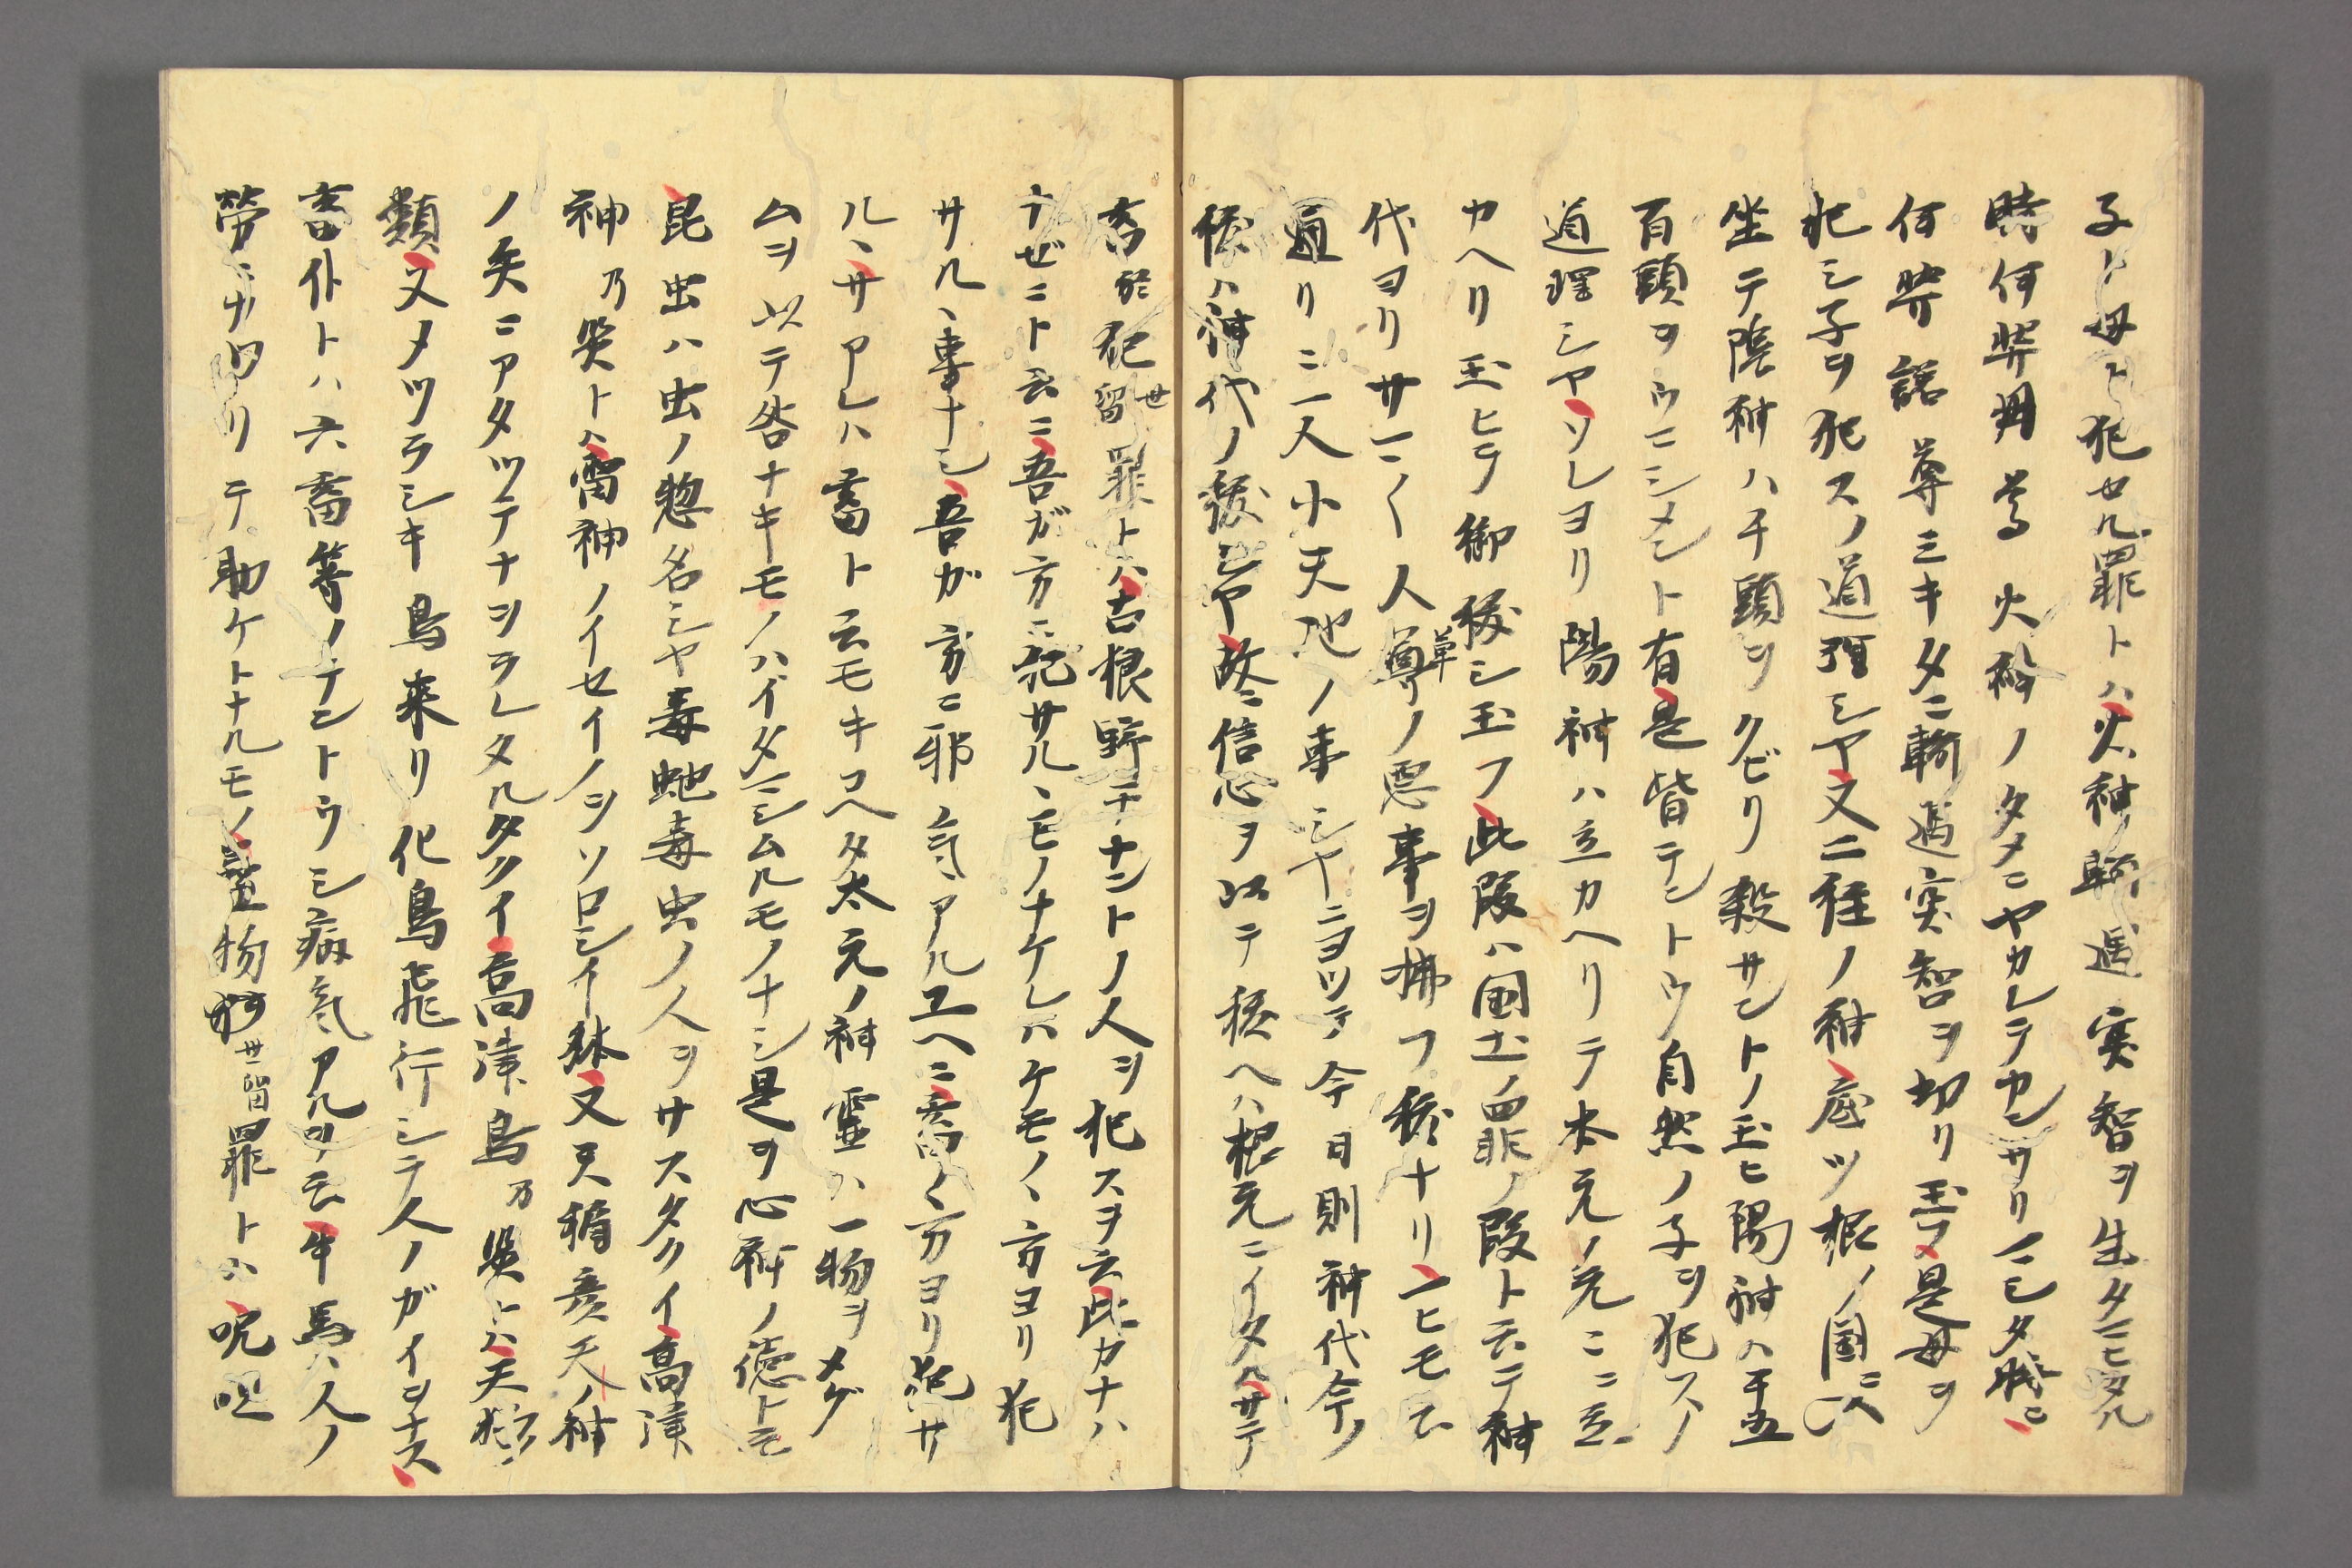 子ト母ト犯セル罪トハ火神軻遇突智ヲ生タマヒタル
時伊弉冊尊火神ノタメニヤカレテカンサリマシタ時ニ
伊弉諾尊ミキダニ軻遇突智ヲ切リ玉フ是母ヲ
犯シ子ヲ犯スノ道理シヤ又二柱ノ神底ツ根ノ国ニ
坐テ陰神ハ千頭ヲクビリ殺サントノ玉ヒ陽神ハ千五
百頭ヲウマシメント有是皆テントウ自然ノ子ヲ犯スノ
道理シヤソレヨリ陽神ハ立カヘリテ本元ノ元ニニ立
カヘリ玉ヒテ御祓シ玉フ此段ハ国土ノ罪ノ段ト云テ神
代ヨリサマ〱人々ノ悪事ヲ払フ祓ナリ一ヒモ云
通リニ人小天地ノ事シヤニヨツテ今日則神代今ノ
祓ハ神代ノ祓シヤ故ニ信心ヲ以テ祓ヘハ根元ニイタルサテ
畜於犯世留罪トハ古狼野干ナントノ人ヲ犯スヲ云此カナハ
ナゼニト云ニ吾ガ方ニ犯サル、モノナケレハケモノ、方ヨリ犯
サル、事ナシ吾ガ方ニ邪気アルユヘニ畜ノ方ヨリ犯サ
ル、サアレハ畜ト云モキコヘタ太元ノ神霊ハ一物ヲメグ
ムヲ以テ咎ナキモノハイタマシムルモノナシ是ヲ心神ノ徳ト云
昆虫ハ虫ノ惣名シヤ毒蛇毒虫ノ人ヲサスタクイ高津
神乃災トハ雷神ノイセイノヲソロシイ躰又天稚彦天ノ神
ノ矢ニアタツテナヲラレタルタクイ高津鳥乃災トハ天狗ノ
類又メツラシキ鳥来リ化鳥飛行シテ人ノガイヲナス
畜仆トハ六畜等ノテントウシ病気アルヲ云牛馬ハ人ノ
労ニナリカワリテ助ケトナルモノ蠱物為世留罪トハ呪咀